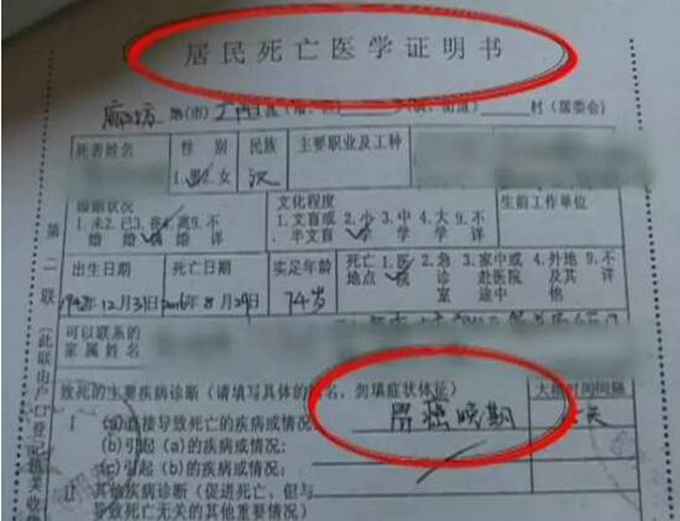 居民死亡医学证明书
廊坊 地(市) 村(居委会)
死者姓名 性别 民族 主要职业及工种
1.男2.女 汉
婚姻状况 文化程度 生前工作单位
1.未婚 2.已婚 3.丧偶 4.离婚 9.不详 1.文盲或半文盲 2.小学 3.中学 4.大学 9.不详
出生日期 死亡日期 实足年龄 死亡地点 1.医院 2.急诊室 3.家中或赴医院途中 4.外地及其他 9.不详
12月31日 2016年8月29日 74岁
可以联系的
家属姓名
致死的主要疾病诊断(请填写具体的病名,勿填症状体征) 大概时间间隔
I (a)直接导致死亡的疾病或情况: 胃癌晚期 天
(b)引起(a)的疾病或情况:
(c)引起(b)的疾病或情况:
II 其他疾病诊断(促进死亡,但与
导致死亡无关的其他重要情况)
第二联(此联由户口登记机关收